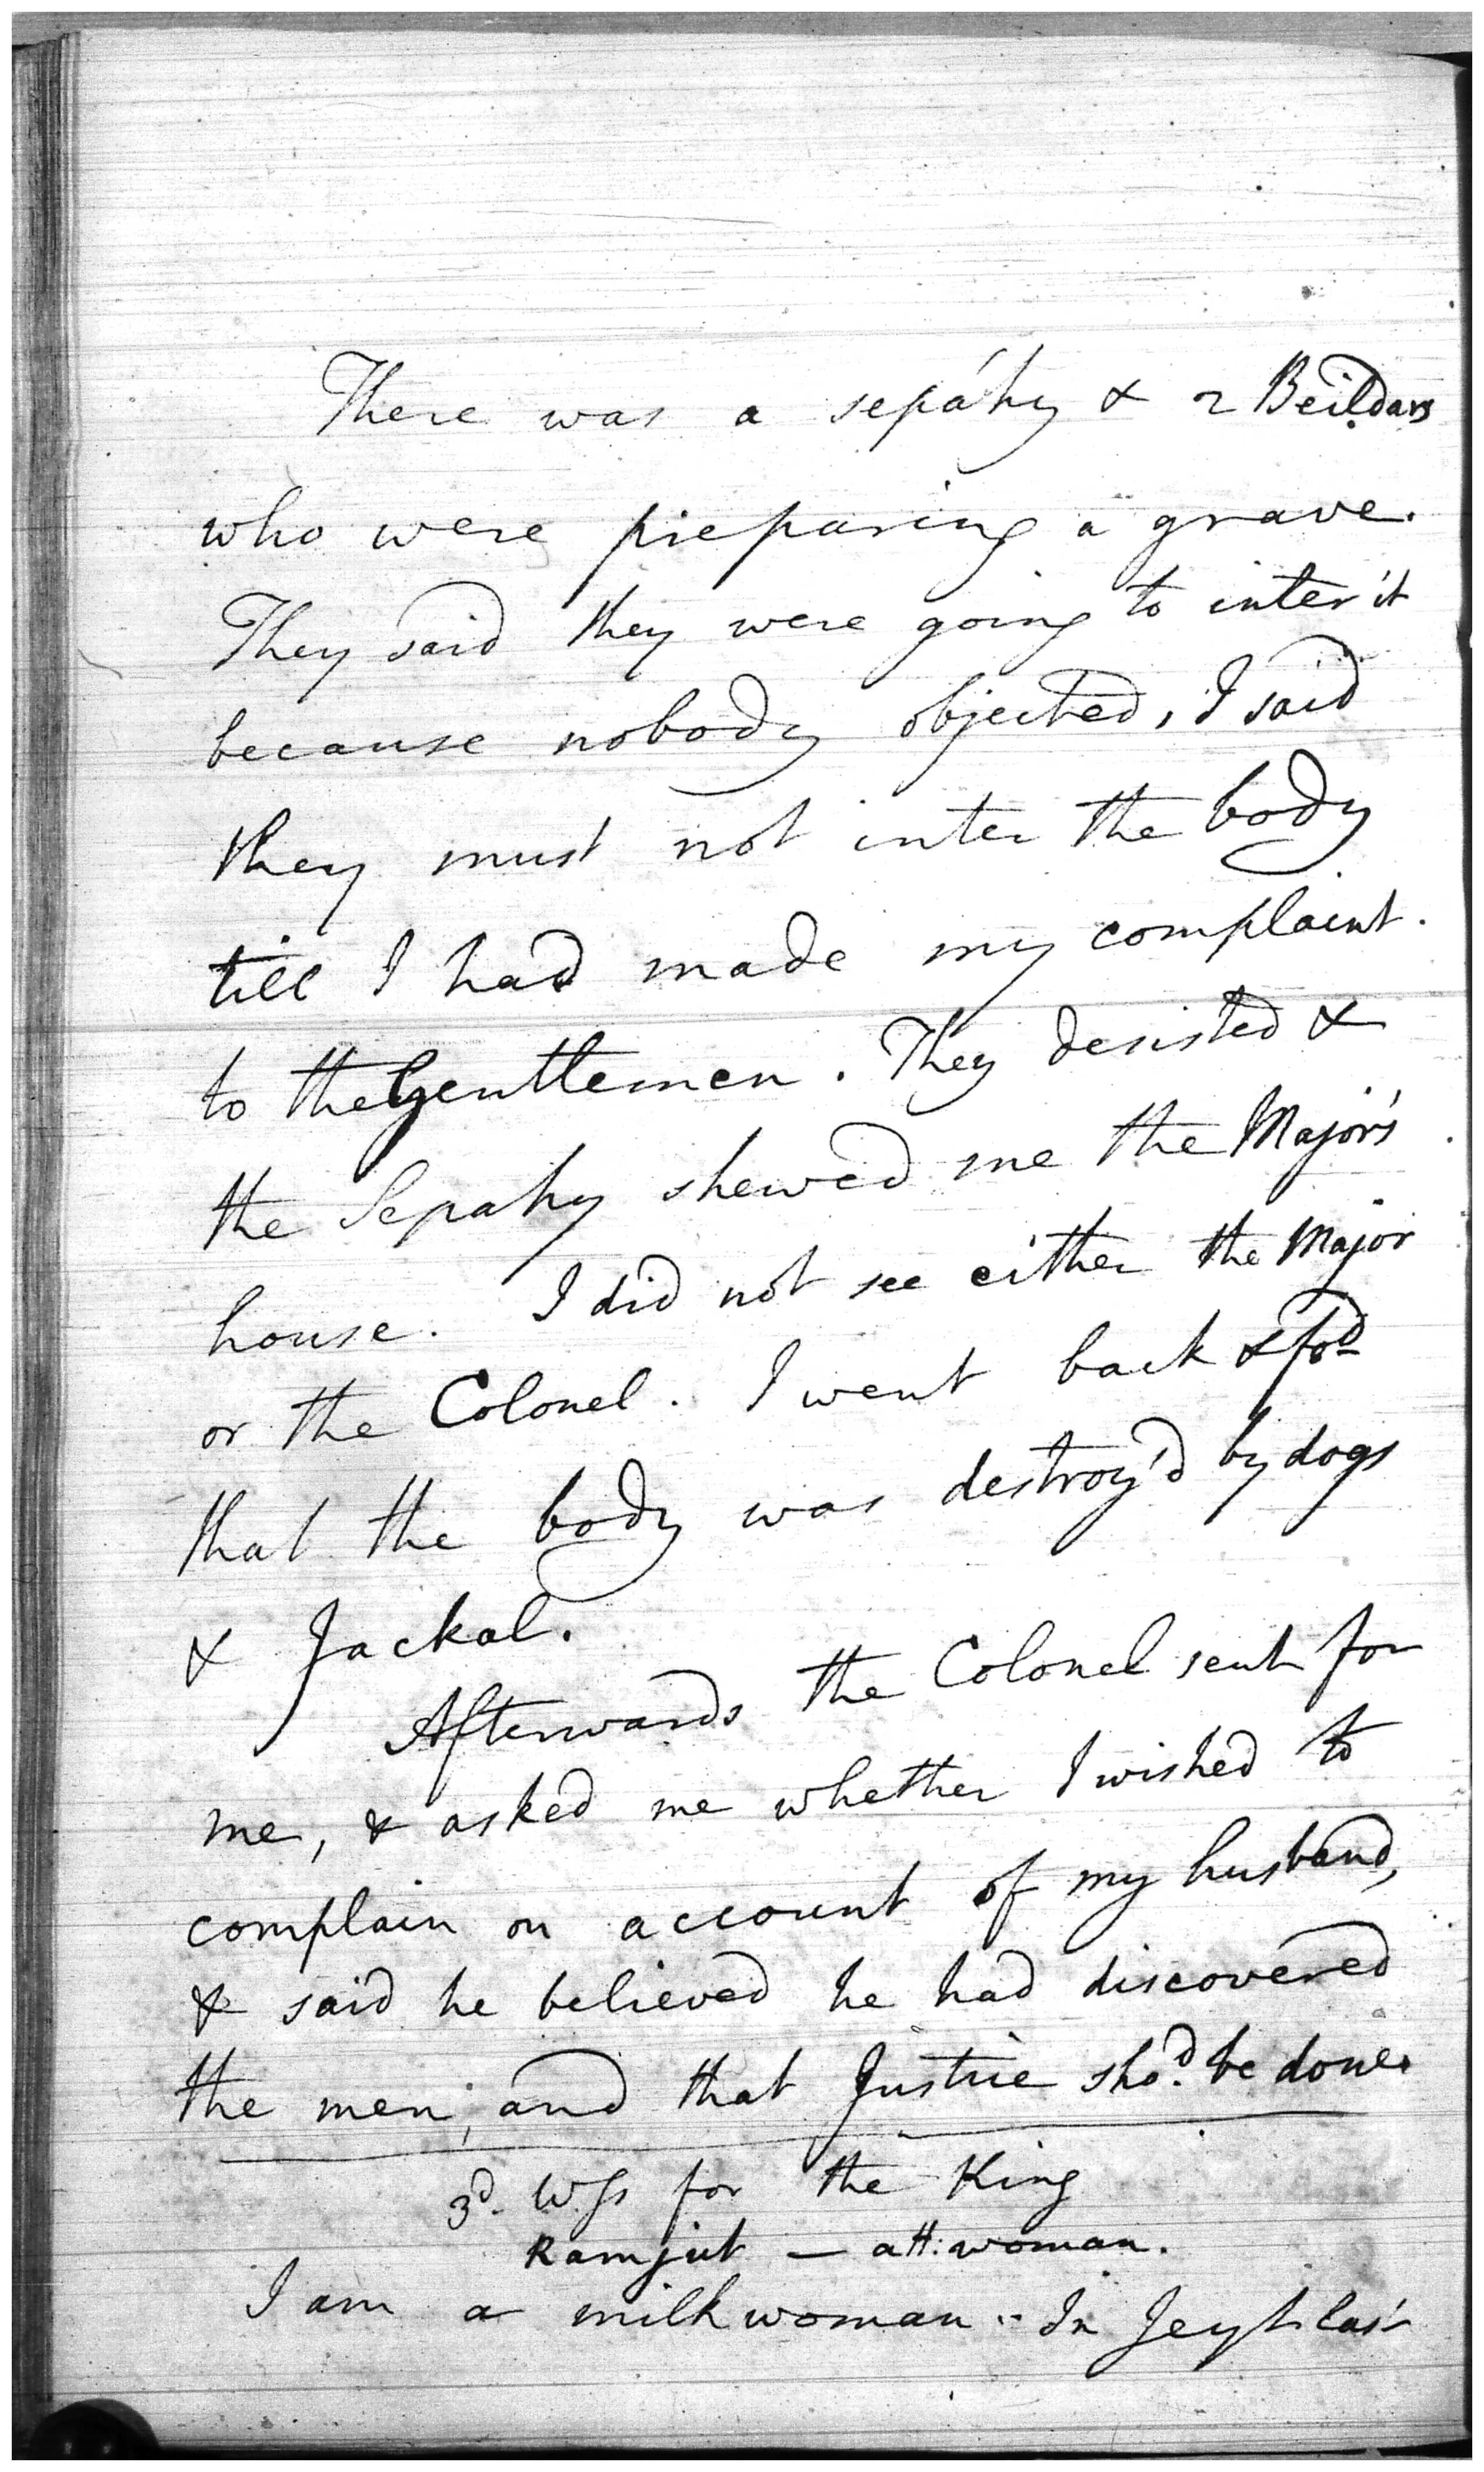 There was a sepáhy & 2 Beildars
who were preparing a grave.
They said they were going to inter it
because nobody objected, I said
they must not inter the body
till I had made my complaint.
to the Gentlemen. They desisted &
the Sepahy shewed me the Major's
house. I did not see either the Major
or the Colonel. I went back & fod
that the body was destroy'd by dogs
& Jackal.
Afterwards the Colonel sent for
me, & asked me whether I wished to
complain on account of my husband,
& said he believed he had discovered
the men, and that Justice shod. be done.
3d. Wss for the King
Ramjut — a H: woman.
I am a milkwoman - In Jeyt last